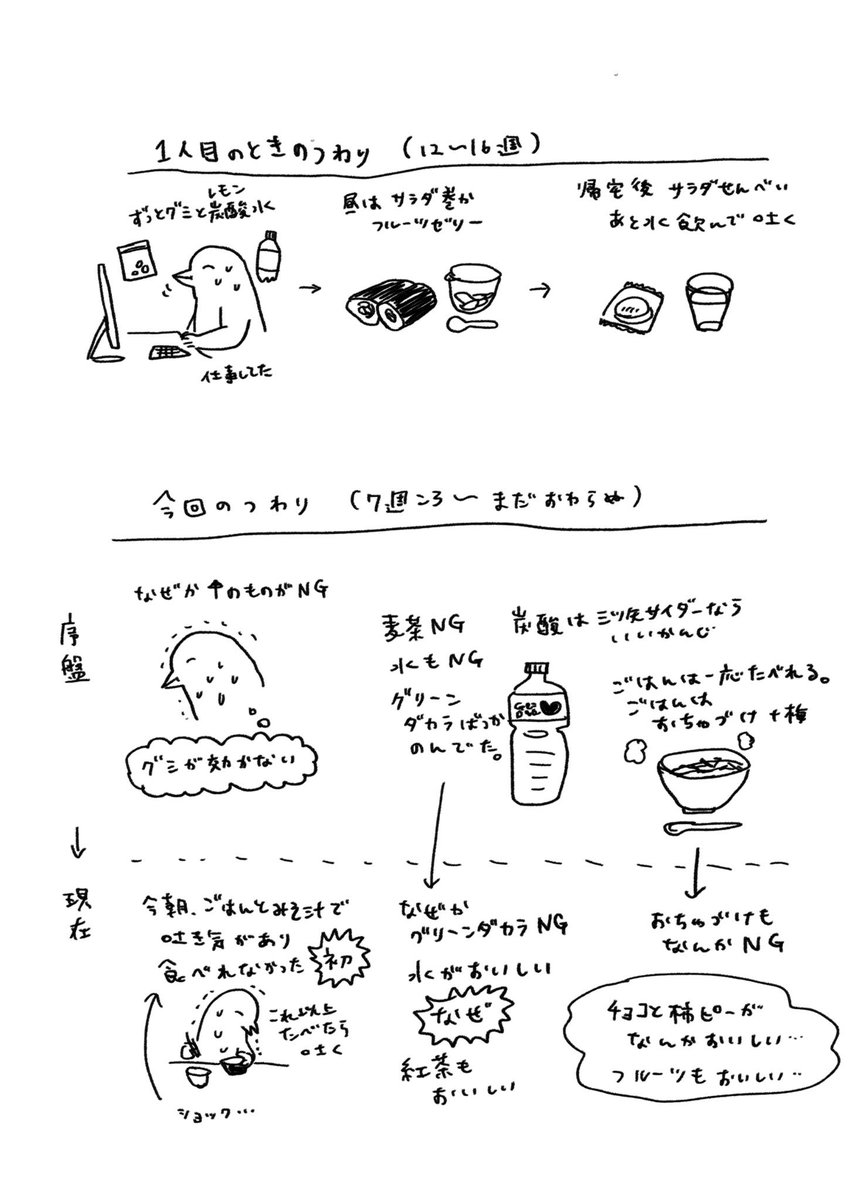 1人目のときのつわり (12〜16週)
レモン
ずっとグミと炭酸水
仕事してた
昼は サラダ巻か
フルーツゼリー
帰宅後 サラダせんべい
あと水飲んで吐く
今回のつわり (7週ころ〜まだおわらぬ)
序盤
なぜか↑のものがNG
グミが効かない
麦茶NG
水もNG
グリーン
ダカラばっか
のんでた。
炭酸は三ツ矢サイダーなら
いいかんじ
ごはんは一応たべれる。
ごはんは
おちゃづけ+梅
↓
現在
今朝、ごはんとみそ汁で
吐き気があり
食べれなかった
初
これ以上
たべたら
吐く
ショック…
なぜか
グリーンダカラNG
水がおいしい
なぜ
紅茶も
おいしい
おちゃづけも
なんかNG
チョコと柿ピーが
なんかおいしい…
フルーツもおいしい…